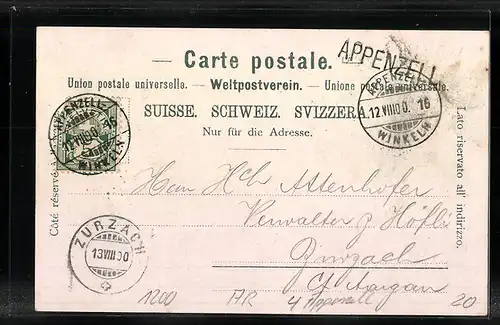 Carte postale.
APPENZELL
Union postale universelle. — Weltpostverein. — Unione postale universale.
SUISSE. SCHWEIZ. SVIZZERA.
Nur für die Adresse.
Côté réservé à
Lato riservato all' indirizzo.
APPENZELL
12 VIII 00
WINKELN
APPENZELL
12 VIII 00. 16
WINKELN
Herrn Hch Attenhofer
Verwalter z Höfli
Zurzach
Ct Aargau
ZURZACH
13 VIII 00
1200
AR
4 Appenzell
20